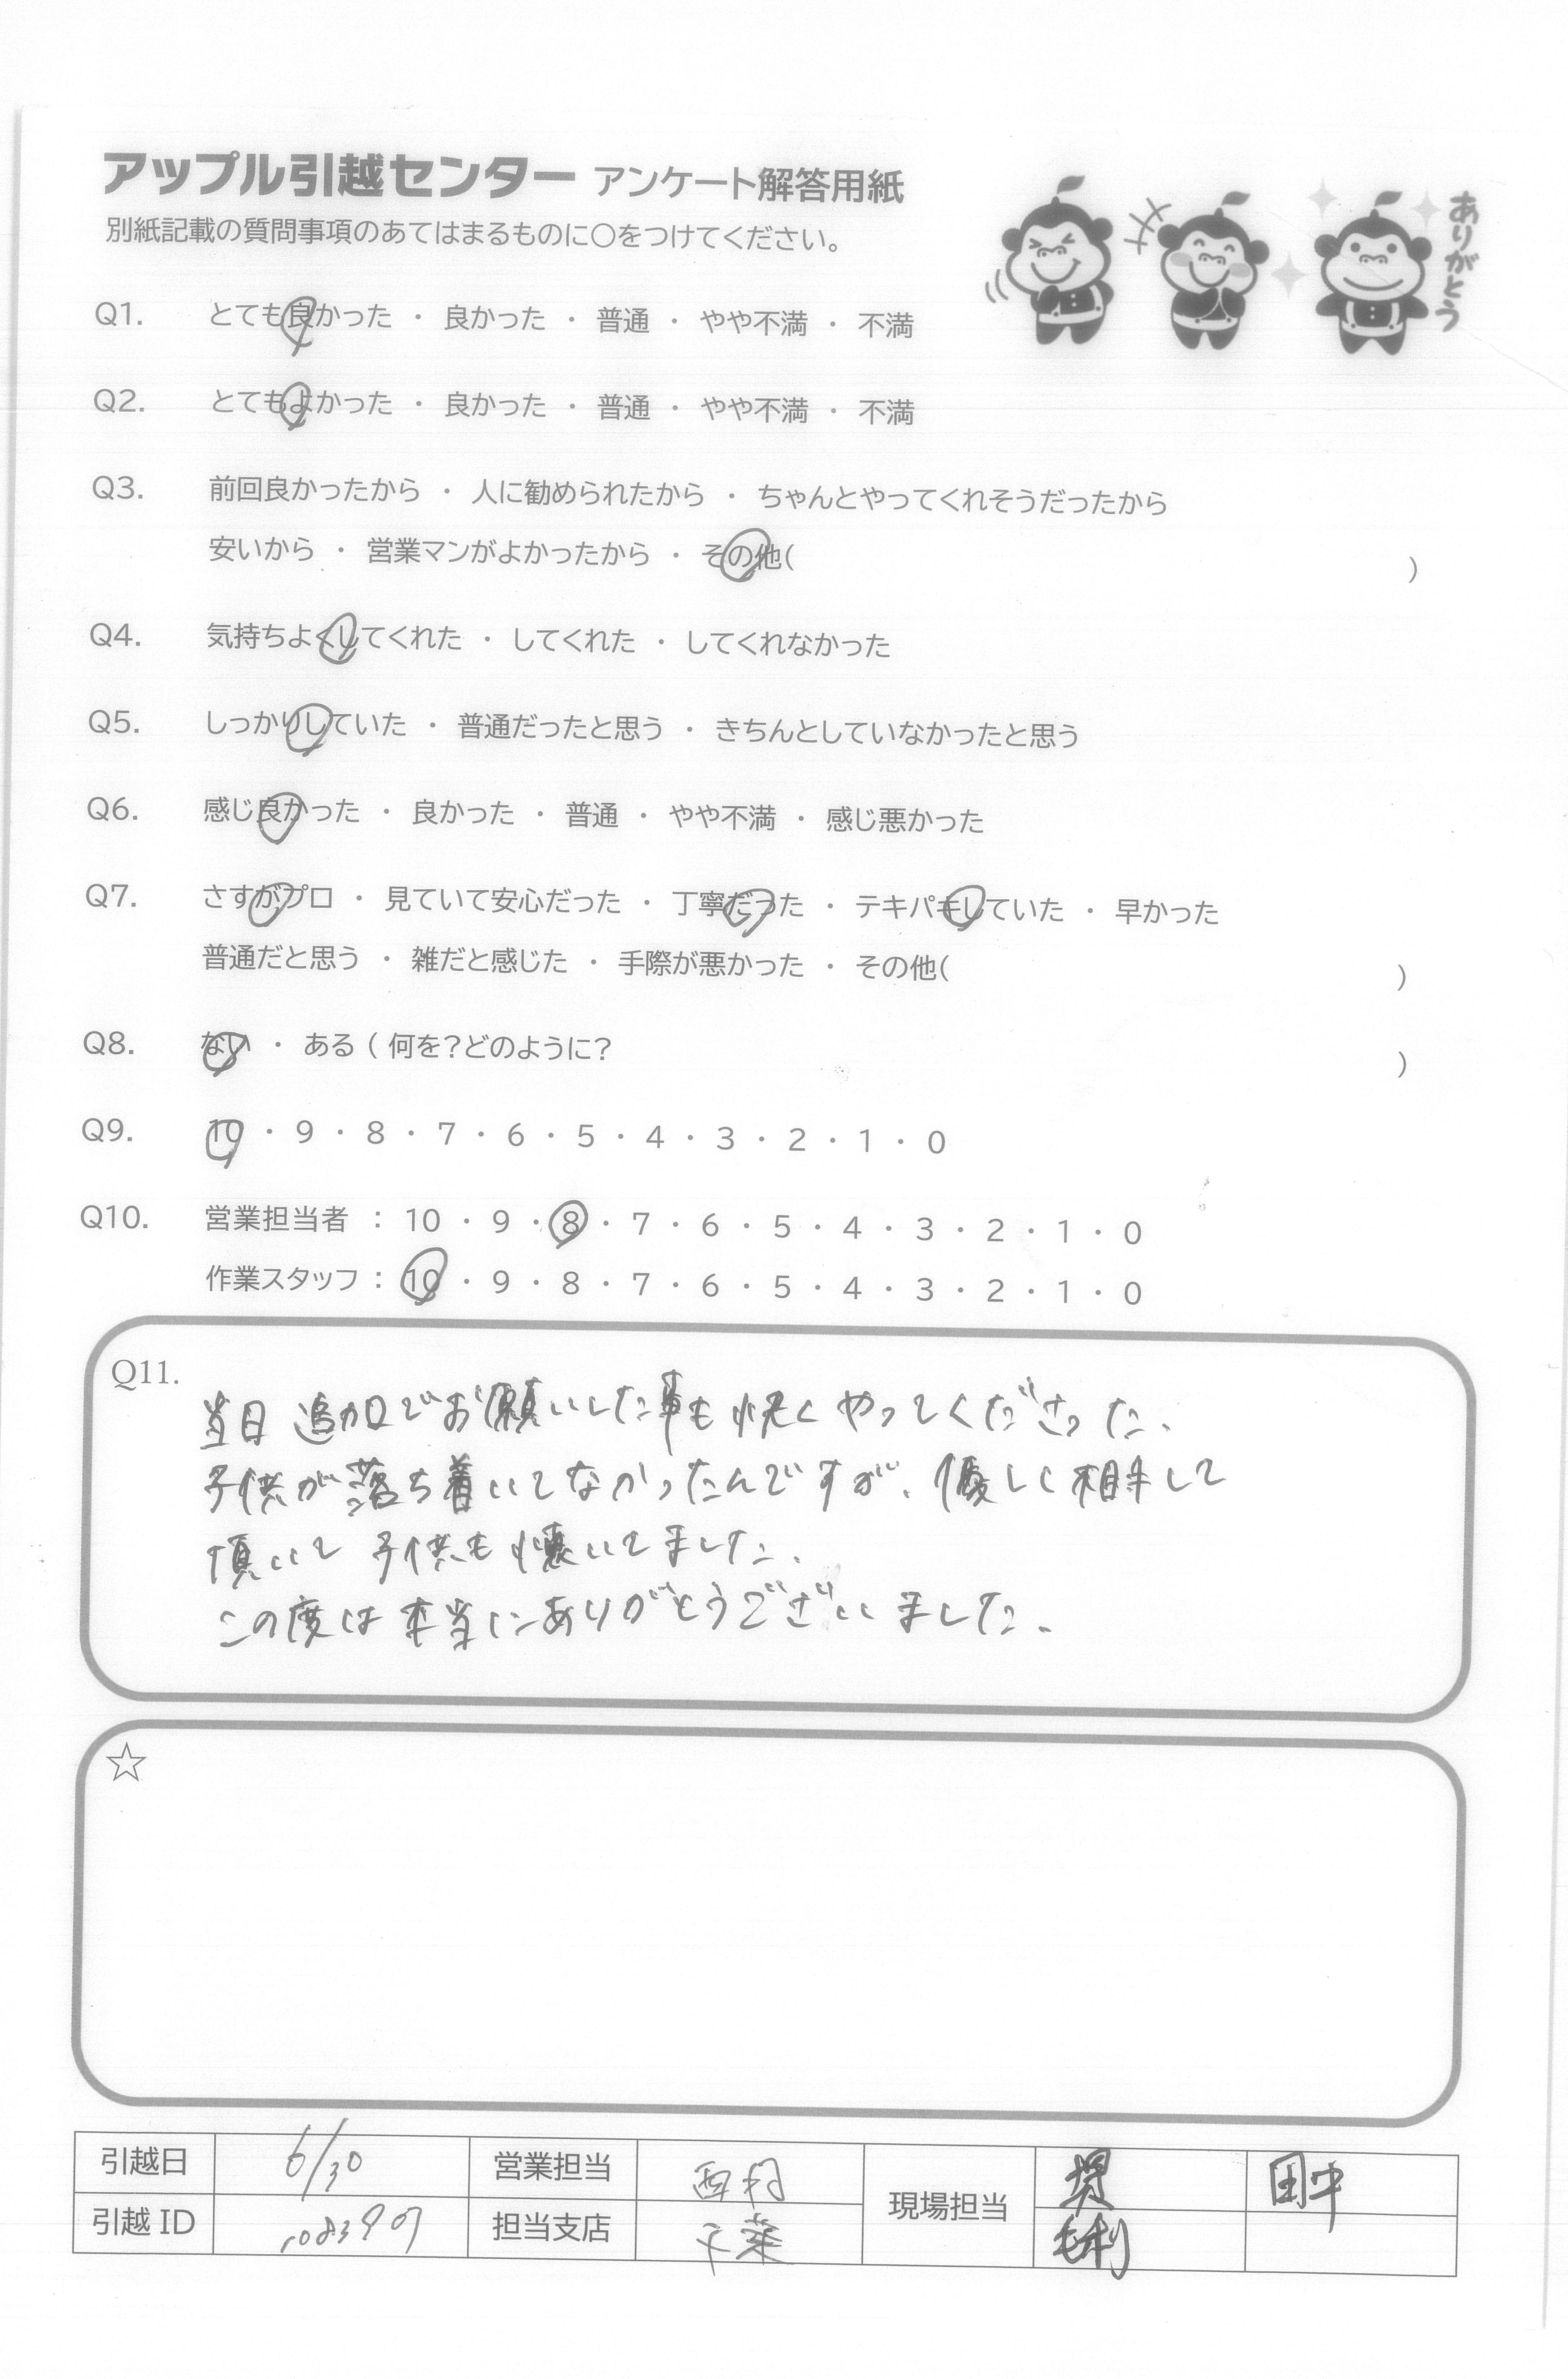 アップル引越センター アンケート解答用紙
別紙記載の質問事項のあてはまるものに○をつけてください。
ありがとう
Q1. とても良かった ・ 良かった ・ 普通 ・ やや不満 ・ 不満
Q2. とてもよかった ・ 良かった ・ 普通 ・ やや不満 ・ 不満
Q3. 前回良かったから ・ 人に勧められたから ・ ちゃんとやってくれそうだったから
安いから ・ 営業マンがよかったから ・ その他( )
Q4. 気持ちよくしてくれた ・ してくれた ・ してくれなかった
Q5. しっかりしていた ・ 普通だったと思う ・ きちんとしていなかったと思う
Q6. 感じ良かった ・ 良かった ・ 普通 ・ やや不満 ・ 感じ悪かった
Q7. さすがプロ ・ 見ていて安心だった ・ 丁寧だった ・ テキパキしていた ・ 早かった
普通だと思う ・ 雑だと感じた ・ 手際が悪かった ・ その他( )
Q8. ない ・ ある ( 何を?どのように? )
Q9. 10 ・ 9 ・ 8 ・ 7 ・ 6 ・ 5 ・ 4 ・ 3 ・ 2 ・ 1 ・ 0
Q10. 営業担当者 : 10 ・ 9 ・ 8 ・ 7 ・ 6 ・ 5 ・ 4 ・ 3 ・ 2 ・ 1 ・ 0
作業スタッフ : 10 ・ 9 ・ 8 ・ 7 ・ 6 ・ 5 ・ 4 ・ 3 ・ 2 ・ 1 ・ 0
Q11.
当日 追加でお願いした事も快くやってくださった、
子供が落ち着いてなかったんですが、優しく相手して
頂いて 子供も懐いてました、
この度は本当にありがとうございました、
☆
引越日 6/30 営業担当 西村 現場担当 田中
引越 ID 担当支店 千葉 毛利